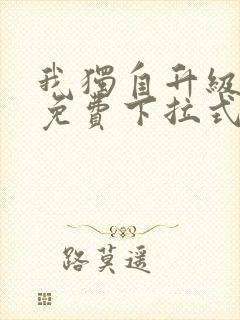 我獨自升級
免費下拉式
路莫遥